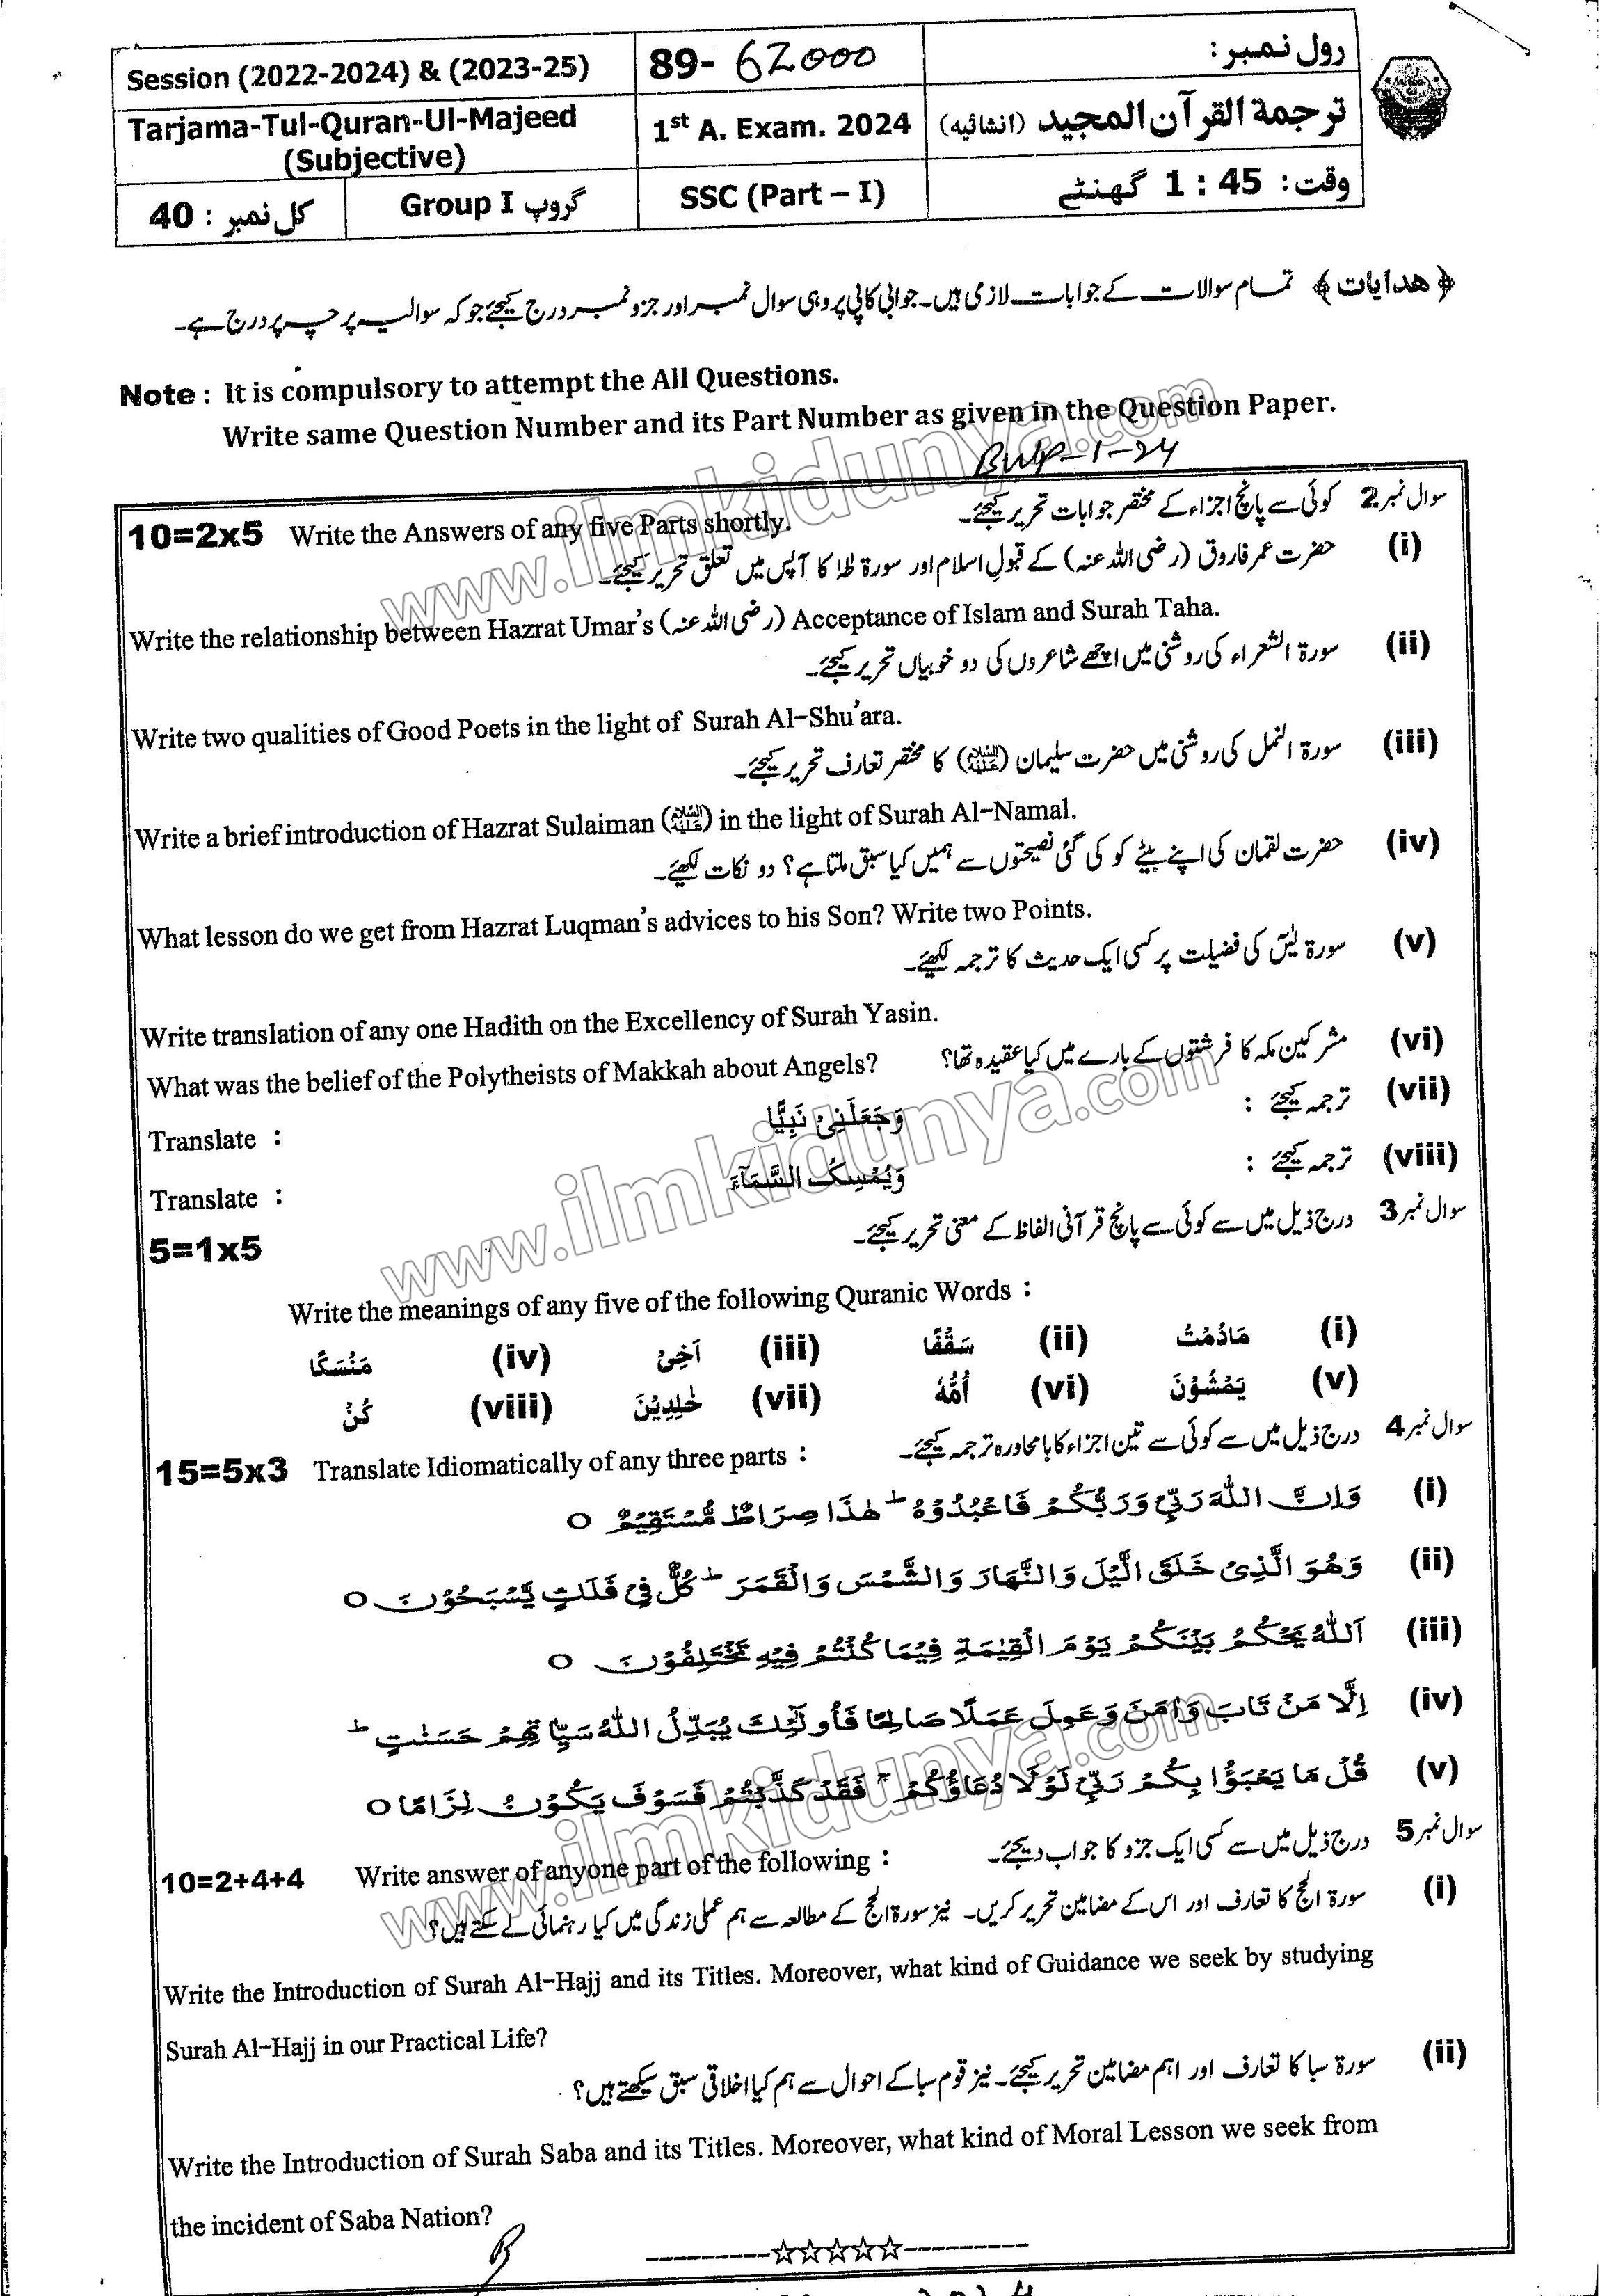 Session (2022-2024) & (2023-25)
89- 62000
رول نمبر:
Tarjama-Tul-Quran-Ul-Majeed
(Subjective)
1st A. Exam. 2024
ترجمة القرآن المجید (انشائیہ)
کل نمبر : 40
Group I گروپ
SSC (Part – I)
وقت: 1 : 45 گھنٹے
﴿ھدایات﴾ تمام سوالات کے جوابات لازمی ہیں۔ جوابی کاپی پر وہی سوال نمبر اور جزو نمبر درج کیجئے جو کہ سوالیہ پرچہ پر درج ہے۔
Note : It is compulsory to attempt the All Questions.
Write same Question Number and its Part Number as given in the Question Paper.
BWP-1-24
سوال نمبر 2 کوئی سے پانچ اجزاء کے مختصر جوابات تحریر کیجئے۔
10=2x5 Write the Answers of any five Parts shortly.
(i) حضرت عمر فاروق (رضی اللہ عنہ) کے قبولِ اسلام اور سورۃ طٰہٰ کا آپس میں تعلق تحریر کیجئے۔
Write the relationship between Hazrat Umar's (رضی اللہ عنہ) Acceptance of Islam and Surah Taha.
(ii) سورۃ الشعراء کی روشنی میں اچھے شاعروں کی دو خوبیاں تحریر کیجئے۔
Write two qualities of Good Poets in the light of Surah Al-Shu'ara.
(iii) سورۃ النمل کی روشنی میں حضرت سلیمان (علیہ السلام) کا مختصر تعارف تحریر کیجئے۔
Write a brief introduction of Hazrat Sulaiman (علیہ السلام) in the light of Surah Al-Namal.
(iv) حضرت لقمان کی اپنے بیٹے کو کی گئی نصیحتوں سے ہمیں کیا سبق ملتا ہے؟ دو نکات لکھیئے۔
What lesson do we get from Hazrat Luqman's advices to his Son? Write two Points.
(v) سورۃ یٰسٓ کی فضیلت پر کسی ایک حدیث کا ترجمہ لکھیئے۔
Write translation of any one Hadith on the Excellency of Surah Yasin.
(vi) مشرکین مکہ کا فرشتوں کے بارے میں کیا عقیدہ تھا؟
What was the belief of the Polytheists of Makkah about Angels?
(vii) ترجمہ کیجئے :
وَجَعَلَنِیْ نَبِیًّا
Translate :
(viii) ترجمہ کیجئے :
وَیُمْسِکُ السَّمَآءَ
Translate :
سوال نمبر 3 درج ذیل میں سے کوئی سے پانچ قرآنی الفاظ کے معنی تحریر کیجئے۔
5=1x5
Write the meanings of any five of the following Quranic Words :
(i) مَادُمْتُ (ii) سَقْفًا (iii) اَخِیْ (iv) مَنْسَکًا
(v) یَمْشُوْنَ (vi) اُمُّهٗ (vii) خٰلِدِیْنَ (viii) کُنْ
سوال نمبر 4 درج ذیل میں سے کوئی سے تین اجزاء کا بامحاورہ ترجمہ کیجئے۔
15=5x3 Translate Idiomatically of any three parts :
(i) وَاِنَّ اللّٰهَ رَبِّیْ وَرَبُّکُمْ فَاعْبُدُوْهُ ؕ هٰذَا صِرَاطٌ مُّسْتَقِیْمٌ ○
(ii) وَهُوَ الَّذِیْ خَلَقَ الَّیْلَ وَالنَّهَارَ وَالشَّمْسَ وَالْقَمَرَ ؕ کُلٌّ فِیْ فَلَکٍ یَّسْبَحُوْنَ ○
(iii) اَللّٰهُ یَحْکُمُ بَیْنَکُمْ یَوْمَ الْقِیٰمَةِ فِیْمَا کُنْتُمْ فِیْهِ تَخْتَلِفُوْنَ ○
(iv) اِلَّا مَنْ تَابَ وَاٰمَنَ وَعَمِلَ عَمَلًا صَالِحًا فَاُولٰٓئِکَ یُبَدِّلُ اللّٰهُ سَیِّاٰتِهِمْ حَسَنٰتٍ ؕ
(v) قُلْ مَا یَعْبَؤُا بِکُمْ رَبِّیْ لَوْلَا دُعَآؤُکُمْ ۚ فَقَدْ کَذَّبْتُمْ فَسَوْفَ یَکُوْنُ لِزَامًا ○
سوال نمبر 5 درج ذیل میں سے کسی ایک جزو کا جواب دیجئے۔
10=2+4+4 Write answer of anyone part of the following :
(i) سورۃ الحج کا تعارف اور اس کے مضامین تحریر کریں۔ نیز سورۃ الحج کے مطالعہ سے ہم عملی زندگی میں کیا رہنمائی لے سکتے ہیں؟
Write the Introduction of Surah Al-Hajj and its Titles. Moreover, what kind of Guidance we seek by studying
Surah Al-Hajj in our Practical Life?
(ii) سورۃ سبا کا تعارف اور اہم مضامین تحریر کیجئے۔ نیز قوم سبا کے احوال سے ہم کیا اخلاقی سبق سیکھتے ہیں؟
Write the Introduction of Surah Saba and its Titles. Moreover, what kind of Moral Lesson we seek from
the incident of Saba Nation?
----------☆☆☆☆☆----------
www.ilmkidunya.com
www.ilmkidunya.com
www.ilmkidunya.com